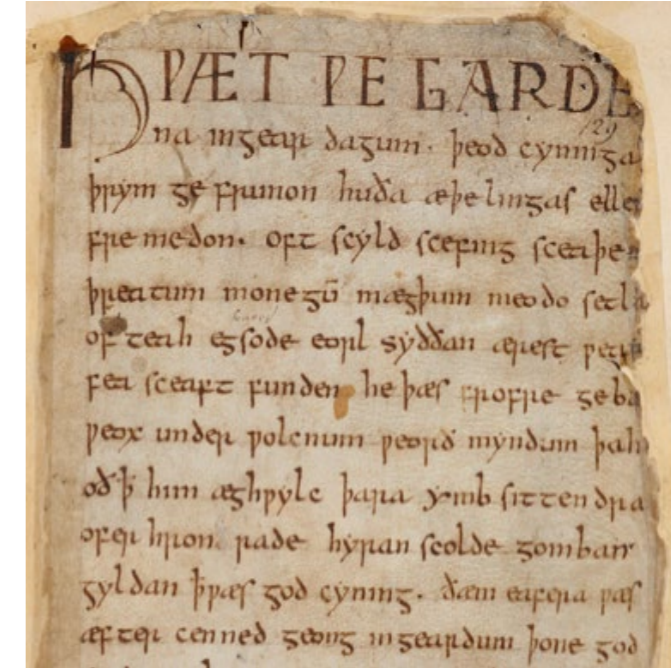 HǷÆT ǷE GARDE
129
na ingear dagum. þeod cyninga
þrym ge frunon huða æþelingas elle
fremedon. oft scyld scefing sceaþe
þreatum monegū mægþum meodo setla
of teah egsode eorl syððan ærest ƿear
fea sceaft funden he þæs frofre geba
ƿeox under ƿolcnum ƿeorð myndum þah
oð ꝥ him æghƿylc þara ymb sittendra
ofer hron rade hyran scolde gomban
gyldan ꝥ ƿæs god cyning. ðæm eafera ƿæs
æfter cenned geong in geardum þone god